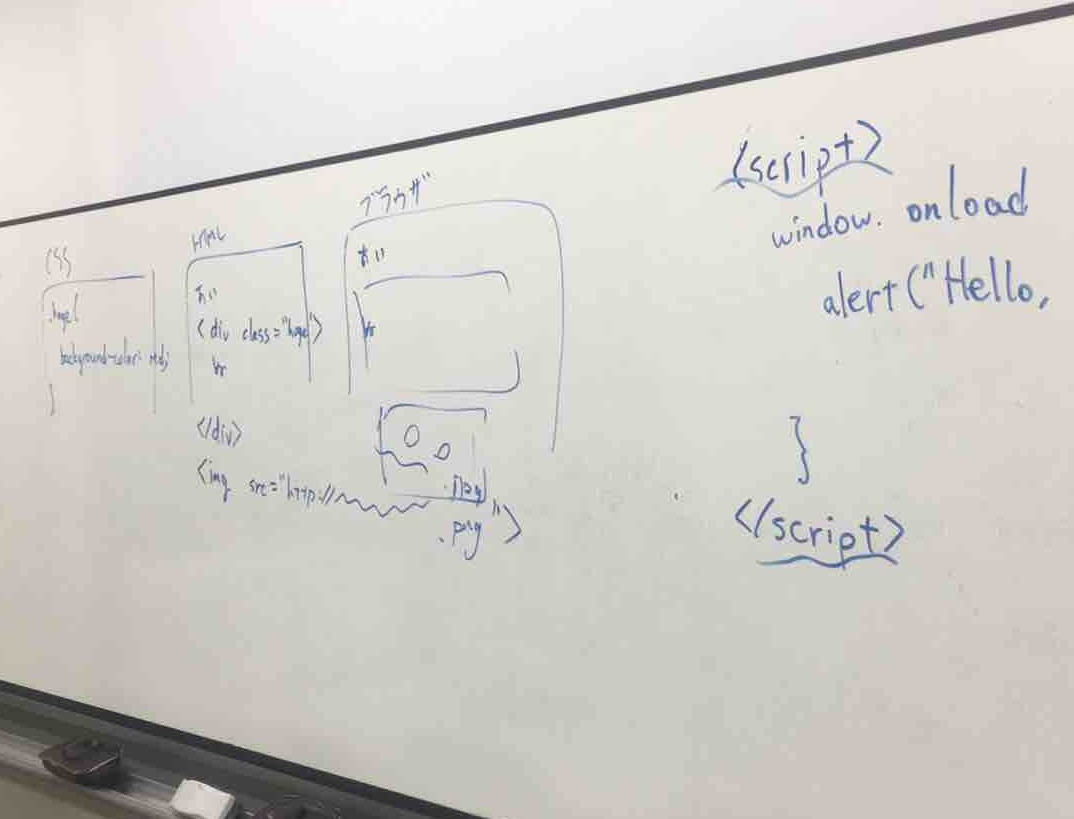 CSS
.hoge{
background-color: red;
}
HTML
あい
<div class="hoge">
</div>
<img src="http://
.jpg
.png ">
ブラウザ
あい
<script>
window. onload
alert("Hello,
}
</script>